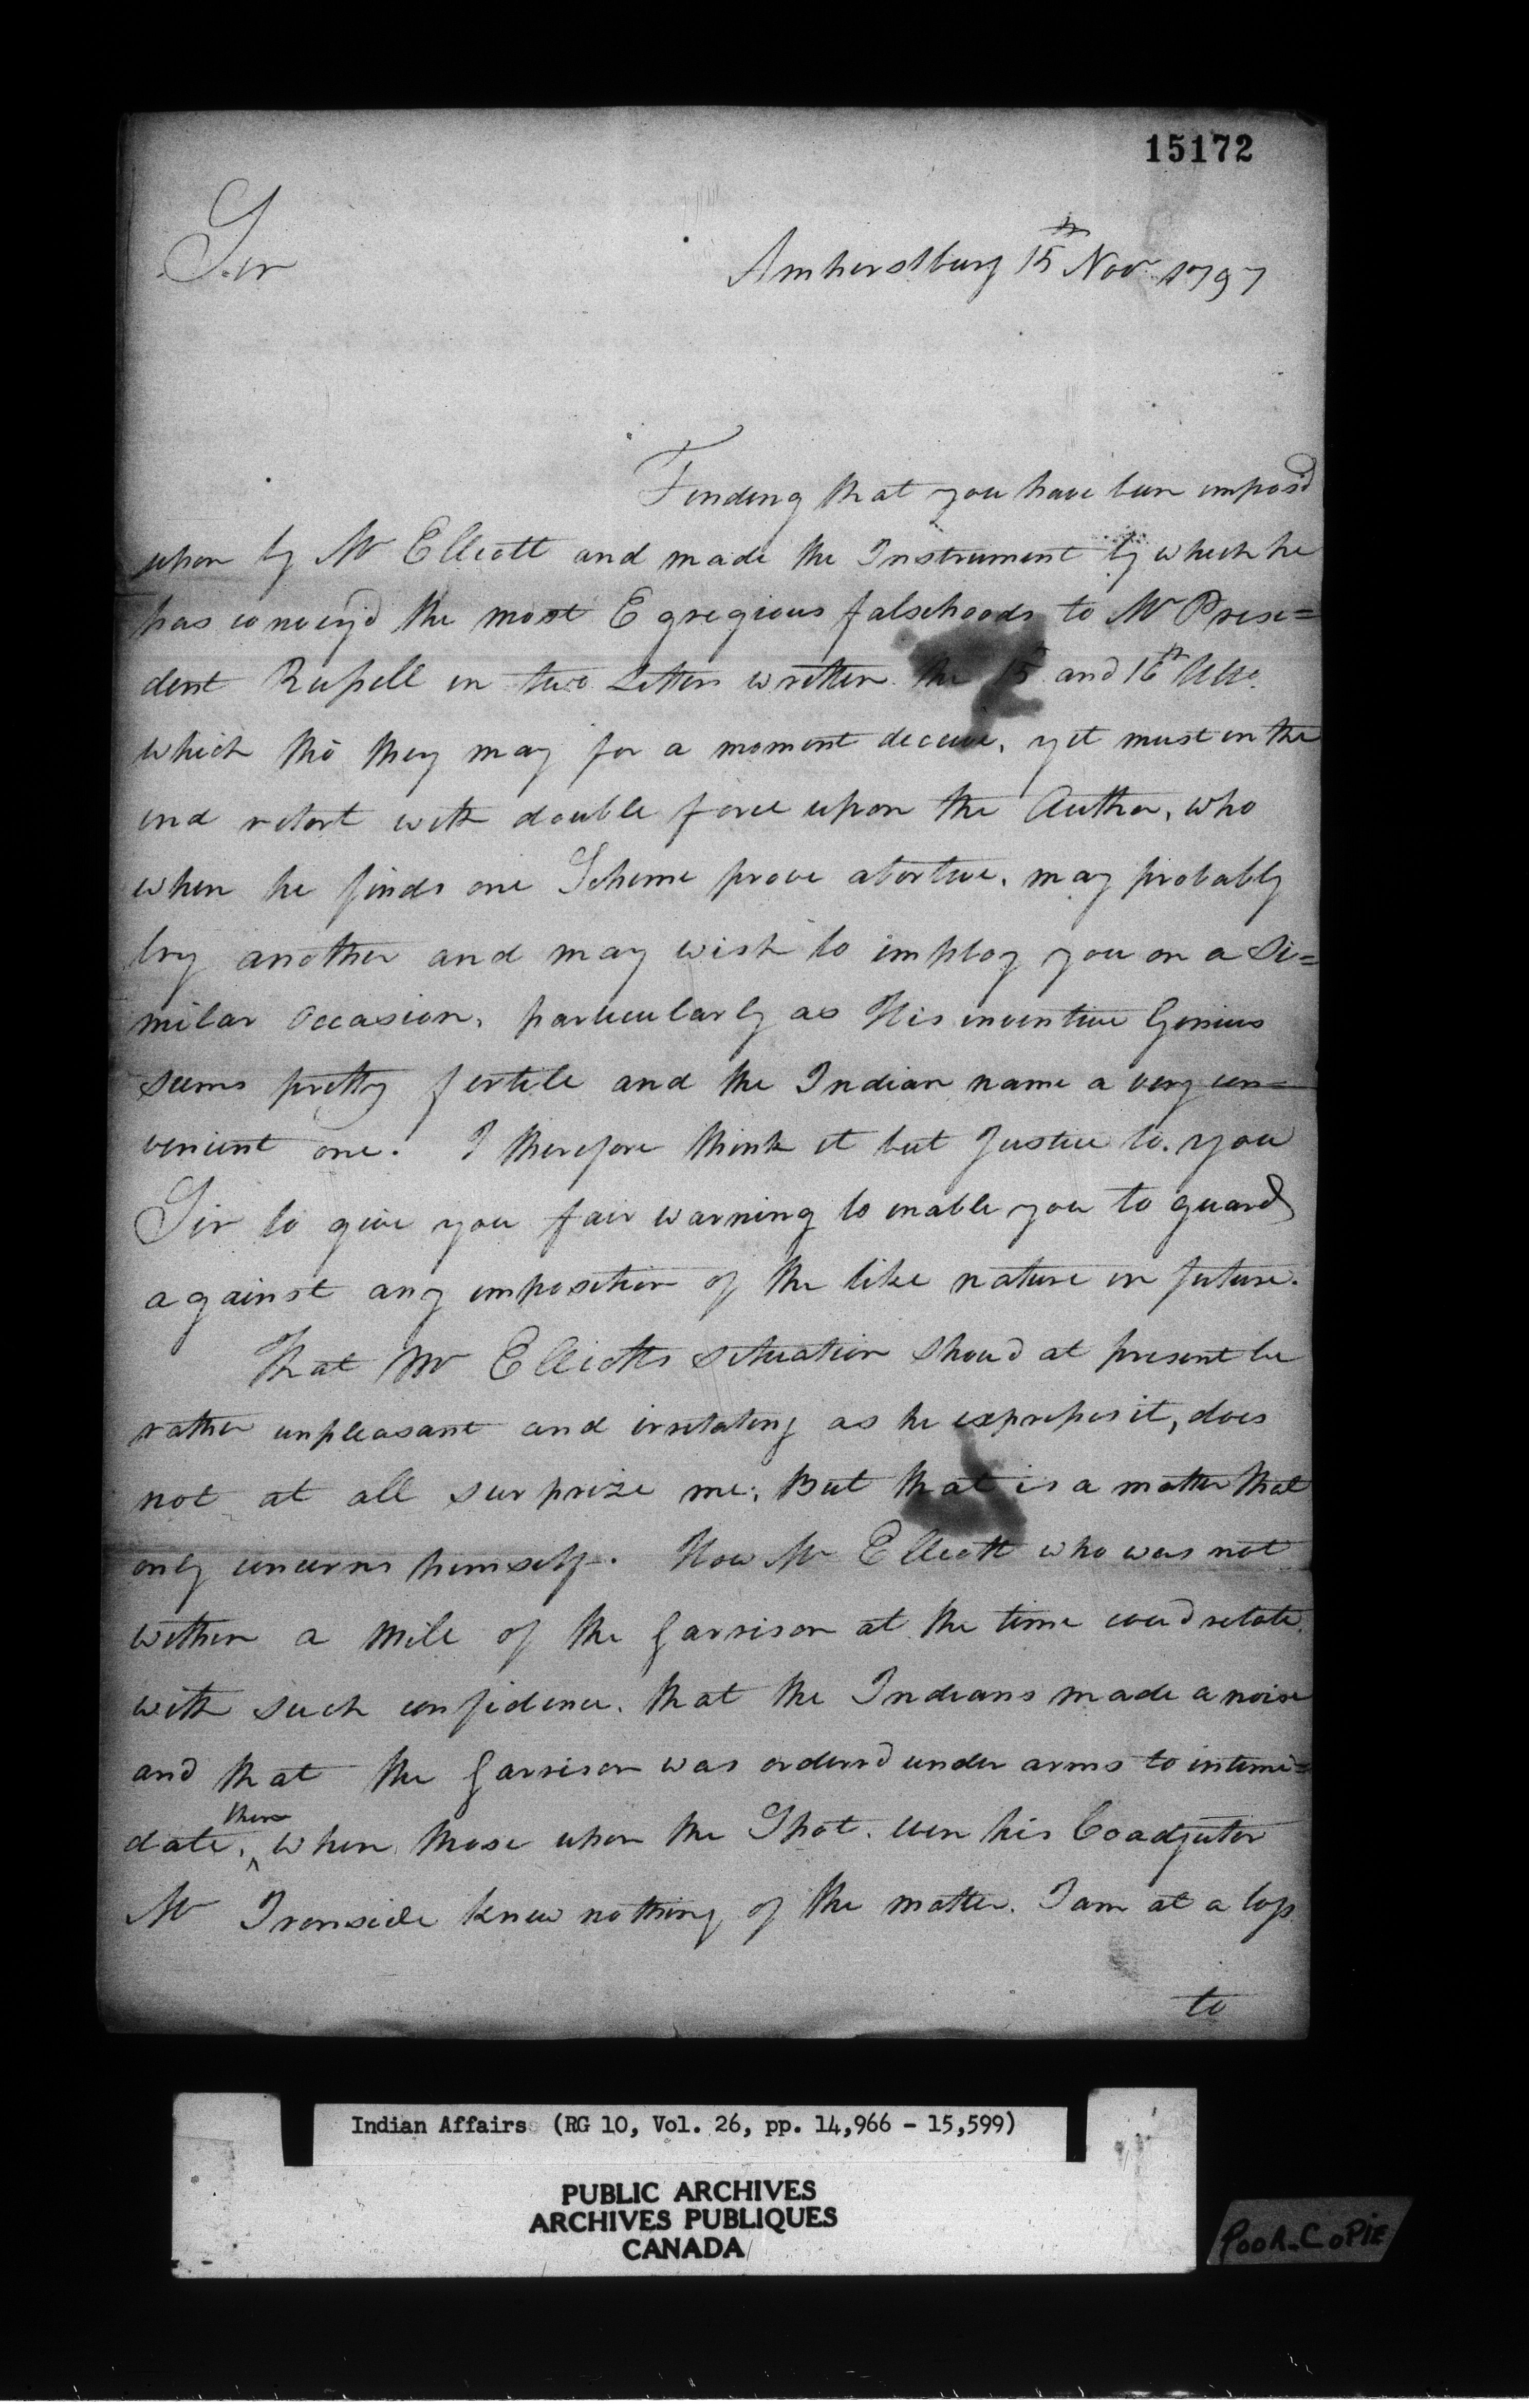 15172
Sir
Amherstburg 15th Novr 1797
Finding that you have been impos'd
upon by Mr Elliott and made the Instrument by which he
has convey'd the most Egregious falsehoods to Mr Presi=
dent Russell in two Letters written the 15th and 16th Ulto.
which tho they may for a moment deceive, yet must in the
end retort with double force upon the Author, who
when he finds one Scheme prove abortive, may probably
try another and may wish to employ you on a Si=
milar Occasion, particularly as His inventive Genius
seems pretty fertile and the Indian name a very con=
venient one. I therefore think it but Justice to you
Sir to give you fair warning to enable you to guard
against any imposition of the like nature in future.
That Mr Elliotts situation shou'd at present be
rather unpleasant and irritating as he expresses it, does
not at all surprize me, But that is a matter that
only concerns himself. How Mr Elliott who was not
within a Mile of the Garrison at the time cou'd relate
with such confidence, that the Indians made a noise
and that the Garrison was order'd under arms to intimi=
them
date, ^ when those upon the Spot, even his Coadjutor
Mr Ironside knew nothing of the matter. I am at a loss
to
Indian Affairs (RG 10, Vol. 26, pp. 14,966 - 15,599)
PUBLIC ARCHIVES
ARCHIVES PUBLIQUES
CANADA
POOR COPIE